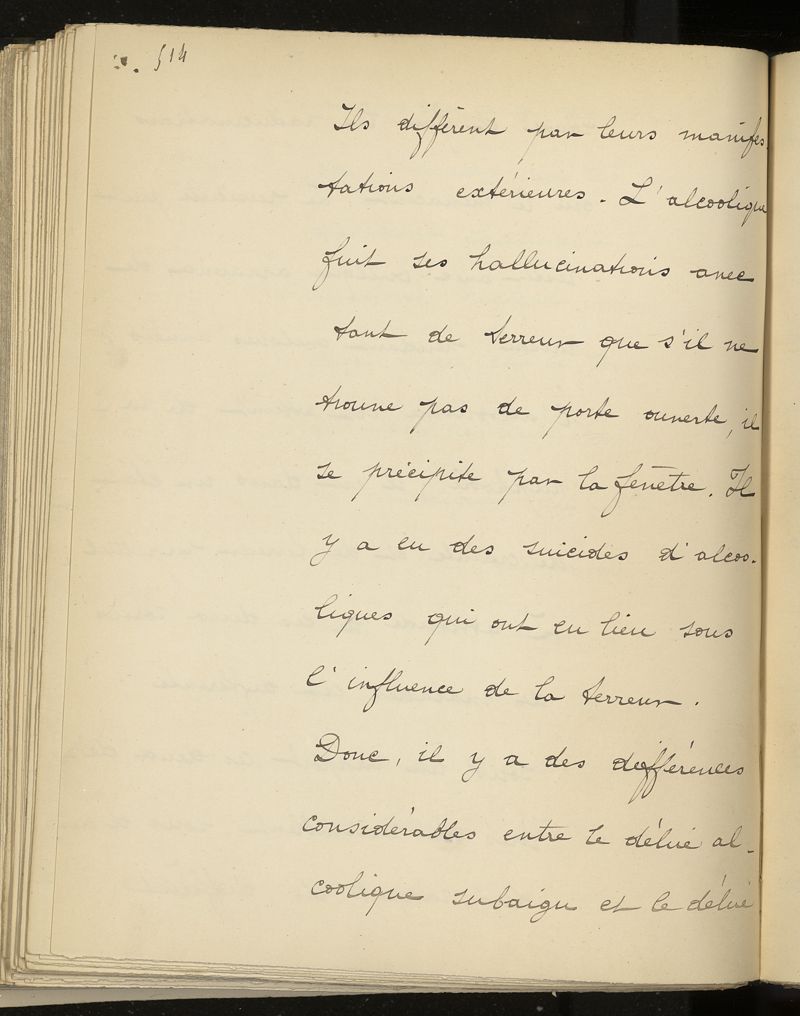 514
Ils diffèrent par leurs manifes-
tations extérieures. L'alcoolique
fuit ses hallucinations avec
tant de terreur que s'il ne
trouve pas de porte ouverte, il
se précipite par la fenêtre. Il
y a eu des suicides d'alcoo-
liques qui ont eu lieu sous
l'influence de la terreur.
Donc, il y a des différences
considérables entre le délire al-
coolique subaigu et le délire